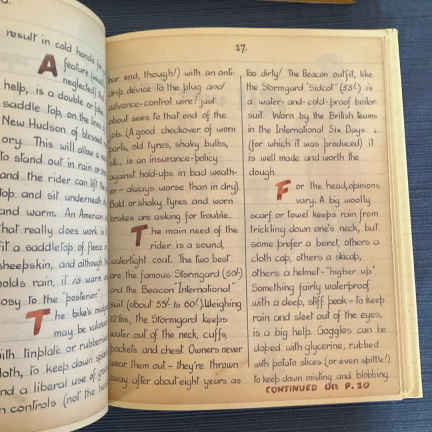 result in cold hands
A feature
neglected)
help, is a double
saddle top, on the lines
New Hudson of blessed
ory. This will allow a
to stand out in rain or
and the rider can lift the
top and sit underneath
and warm. An American
that really does work is
fit a saddletop of fleece
sheepskin, and although
holds rain, it is warm
cosy to the "posterior."
The bike's
may be
with tinplate or rubber
cloth, to keep down
and a liberal use of
on controls (not the
37.
bar end, though!) with an anti-
drip device to the plug and
advance-control wire just
about sees to that end of the
job. (A good checkover of worn
parts, old tyres, shaky bulbs,
etc., is an insurance-policy
against hold-ups in bad weath-
er - always worse than in dry)
Bald or shaky tyres and worn
brakes are asking for trouble.
The main need of the
rider is a sound,
watertight coat. The two best
are the famous Stormgard (50/-)
and the Beacon "International"
suit (about 55/- to 60/-) Weighing
12 lbs, the Stormgard keeps
water out of the neck, cuffs,
pockets and chest. Owners never
wear them out - they're thrown
away after about eight years as
too dirty! The Beacon outfit, like
the Stormgard "Sidcot" (55/-) is
a water- and-cold-proof boiler-
suit. Worn by the British teams
in the International Six Days
(for which it was produced) it
is well made and worth the
dough.
For the head, opinions
vary. A big woolly
scarf or towel keeps rain from
trickling down one's neck, but
some prefer a beret, others a
cloth cap, others a skicap,
others a helmet - "higher up."
Something fairly waterproof
with a deep, stiff peak - to keep
rain and sleet out of the eyes,
is a big help. Goggles can be
doped with glycerine, rubbed
with potato slices (or even spittle!)
to keep down misting and blobbing.
CONTINUED ON P. 30